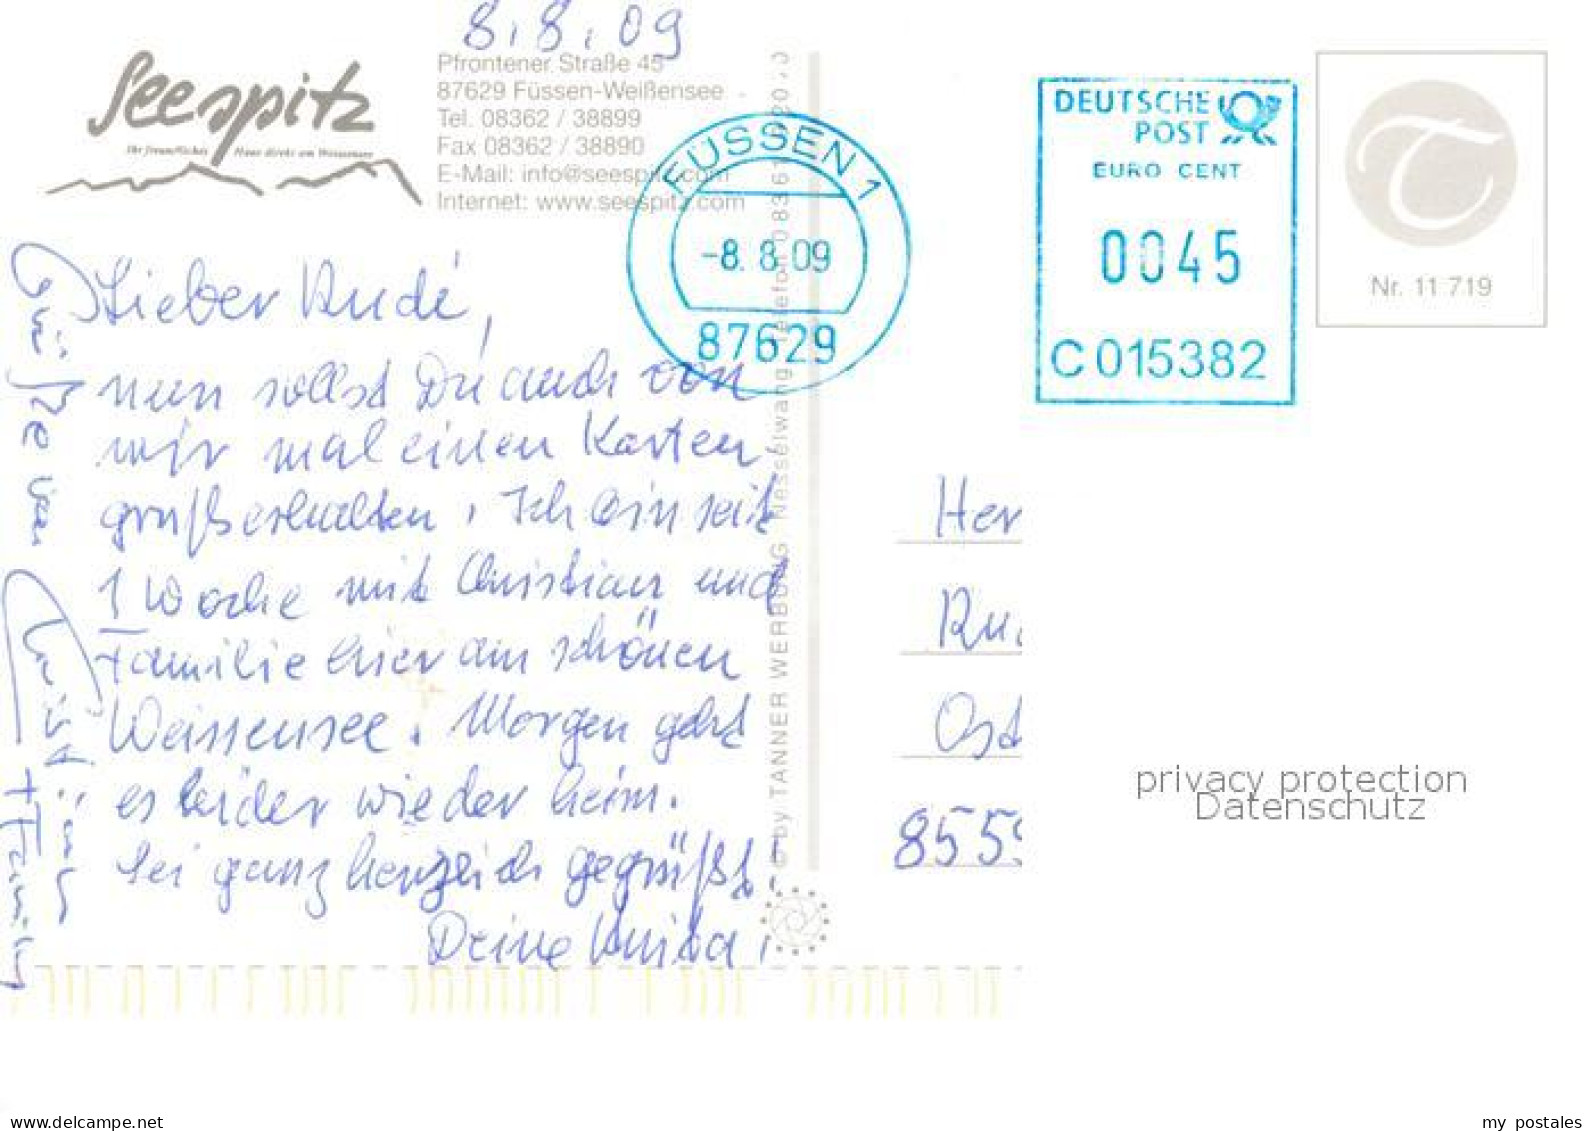 8.8.09
Seespitz
Ihr freundliches Haus direkt am Weissensee
Pfrontener Straße 45
87629 Füssen-Weißensee
Tel. 08362 / 38899
Fax 08362 / 38890
E-Mail: info@seespitz.com
Internet: www.seespitz.com
FÜSSEN 1
-8. 8.09
87629
DEUTSCHE
POST
EURO CENT
0045
C015382
Nr. 11 719
Lieber Rudi,
nun sollst Du auch von
mir mal einen Karten
gruß erhalten. Ich bin seit
1 Woche mit Christian und
Familie hier am schönen
Weissensee. Morgen geht
es leider wieder heim.
Sei ganz herzlich gegrüßt
Deine
Grüße von
Christian
+ Family
© by TANNER WERBUNG Nesselwang Telefon 0836
Her
Ru
Ost
8559
privacy protection
Datenschutz
www.delcampe.net
my_postales